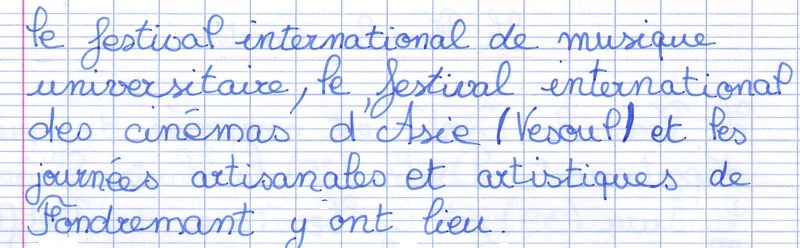 le festival international de musique
universitaire, le festival international
des cinémas d'Asie (Vesoul) et les
journées artisanales et artistiques de
Fondremant y ont lieu.